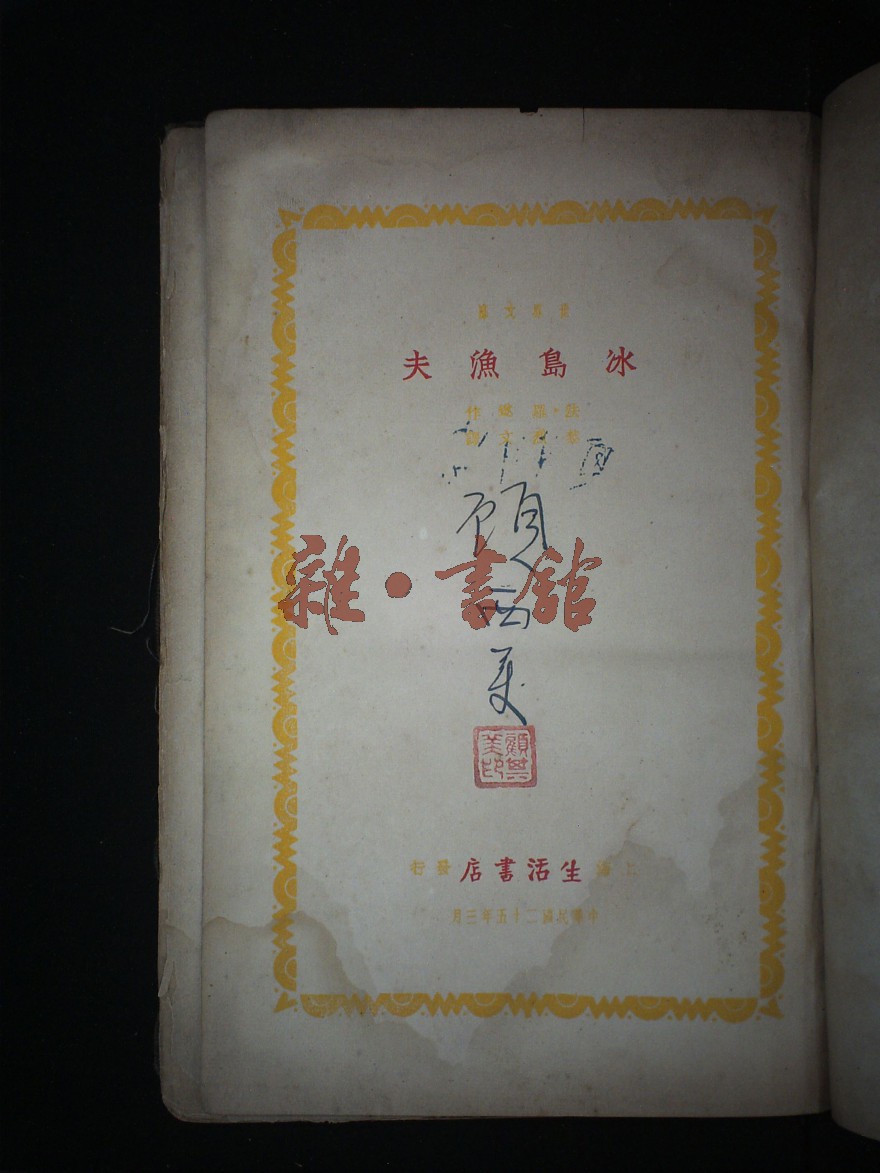 世界文庫
冰島漁夫
法·羅逖作
黎烈文譯
雜·書館
上海生活書店發行
中華民國二十五年三月